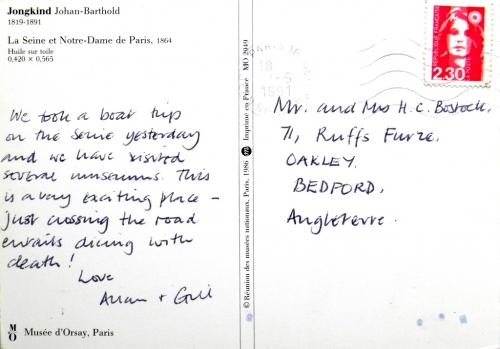 Jongkind Johan-Barthold
1819-1891
La Seine et Notre-Dame de Paris, 1864
Huile sur toile
0,420 × 0,565
We took a boat trip
on the Seine yesterday
and we have visited
several museums. This
is a very exciting place –
just crossing the road
entails dicing with
death!
Love
Allan + Gill
M/O Musée d'Orsay, Paris
© Réunion des musées nationaux, Paris, 1986 Imprimé en France MO 2949
PARIS
18
1991
RÉPUBLIQUE FRANÇAISE
LA POSTE
2,30
Mr. and Mrs H. C. Bostock,
71, Ruffs Furze,
OAKLEY.
BEDFORD,
Angleterre.